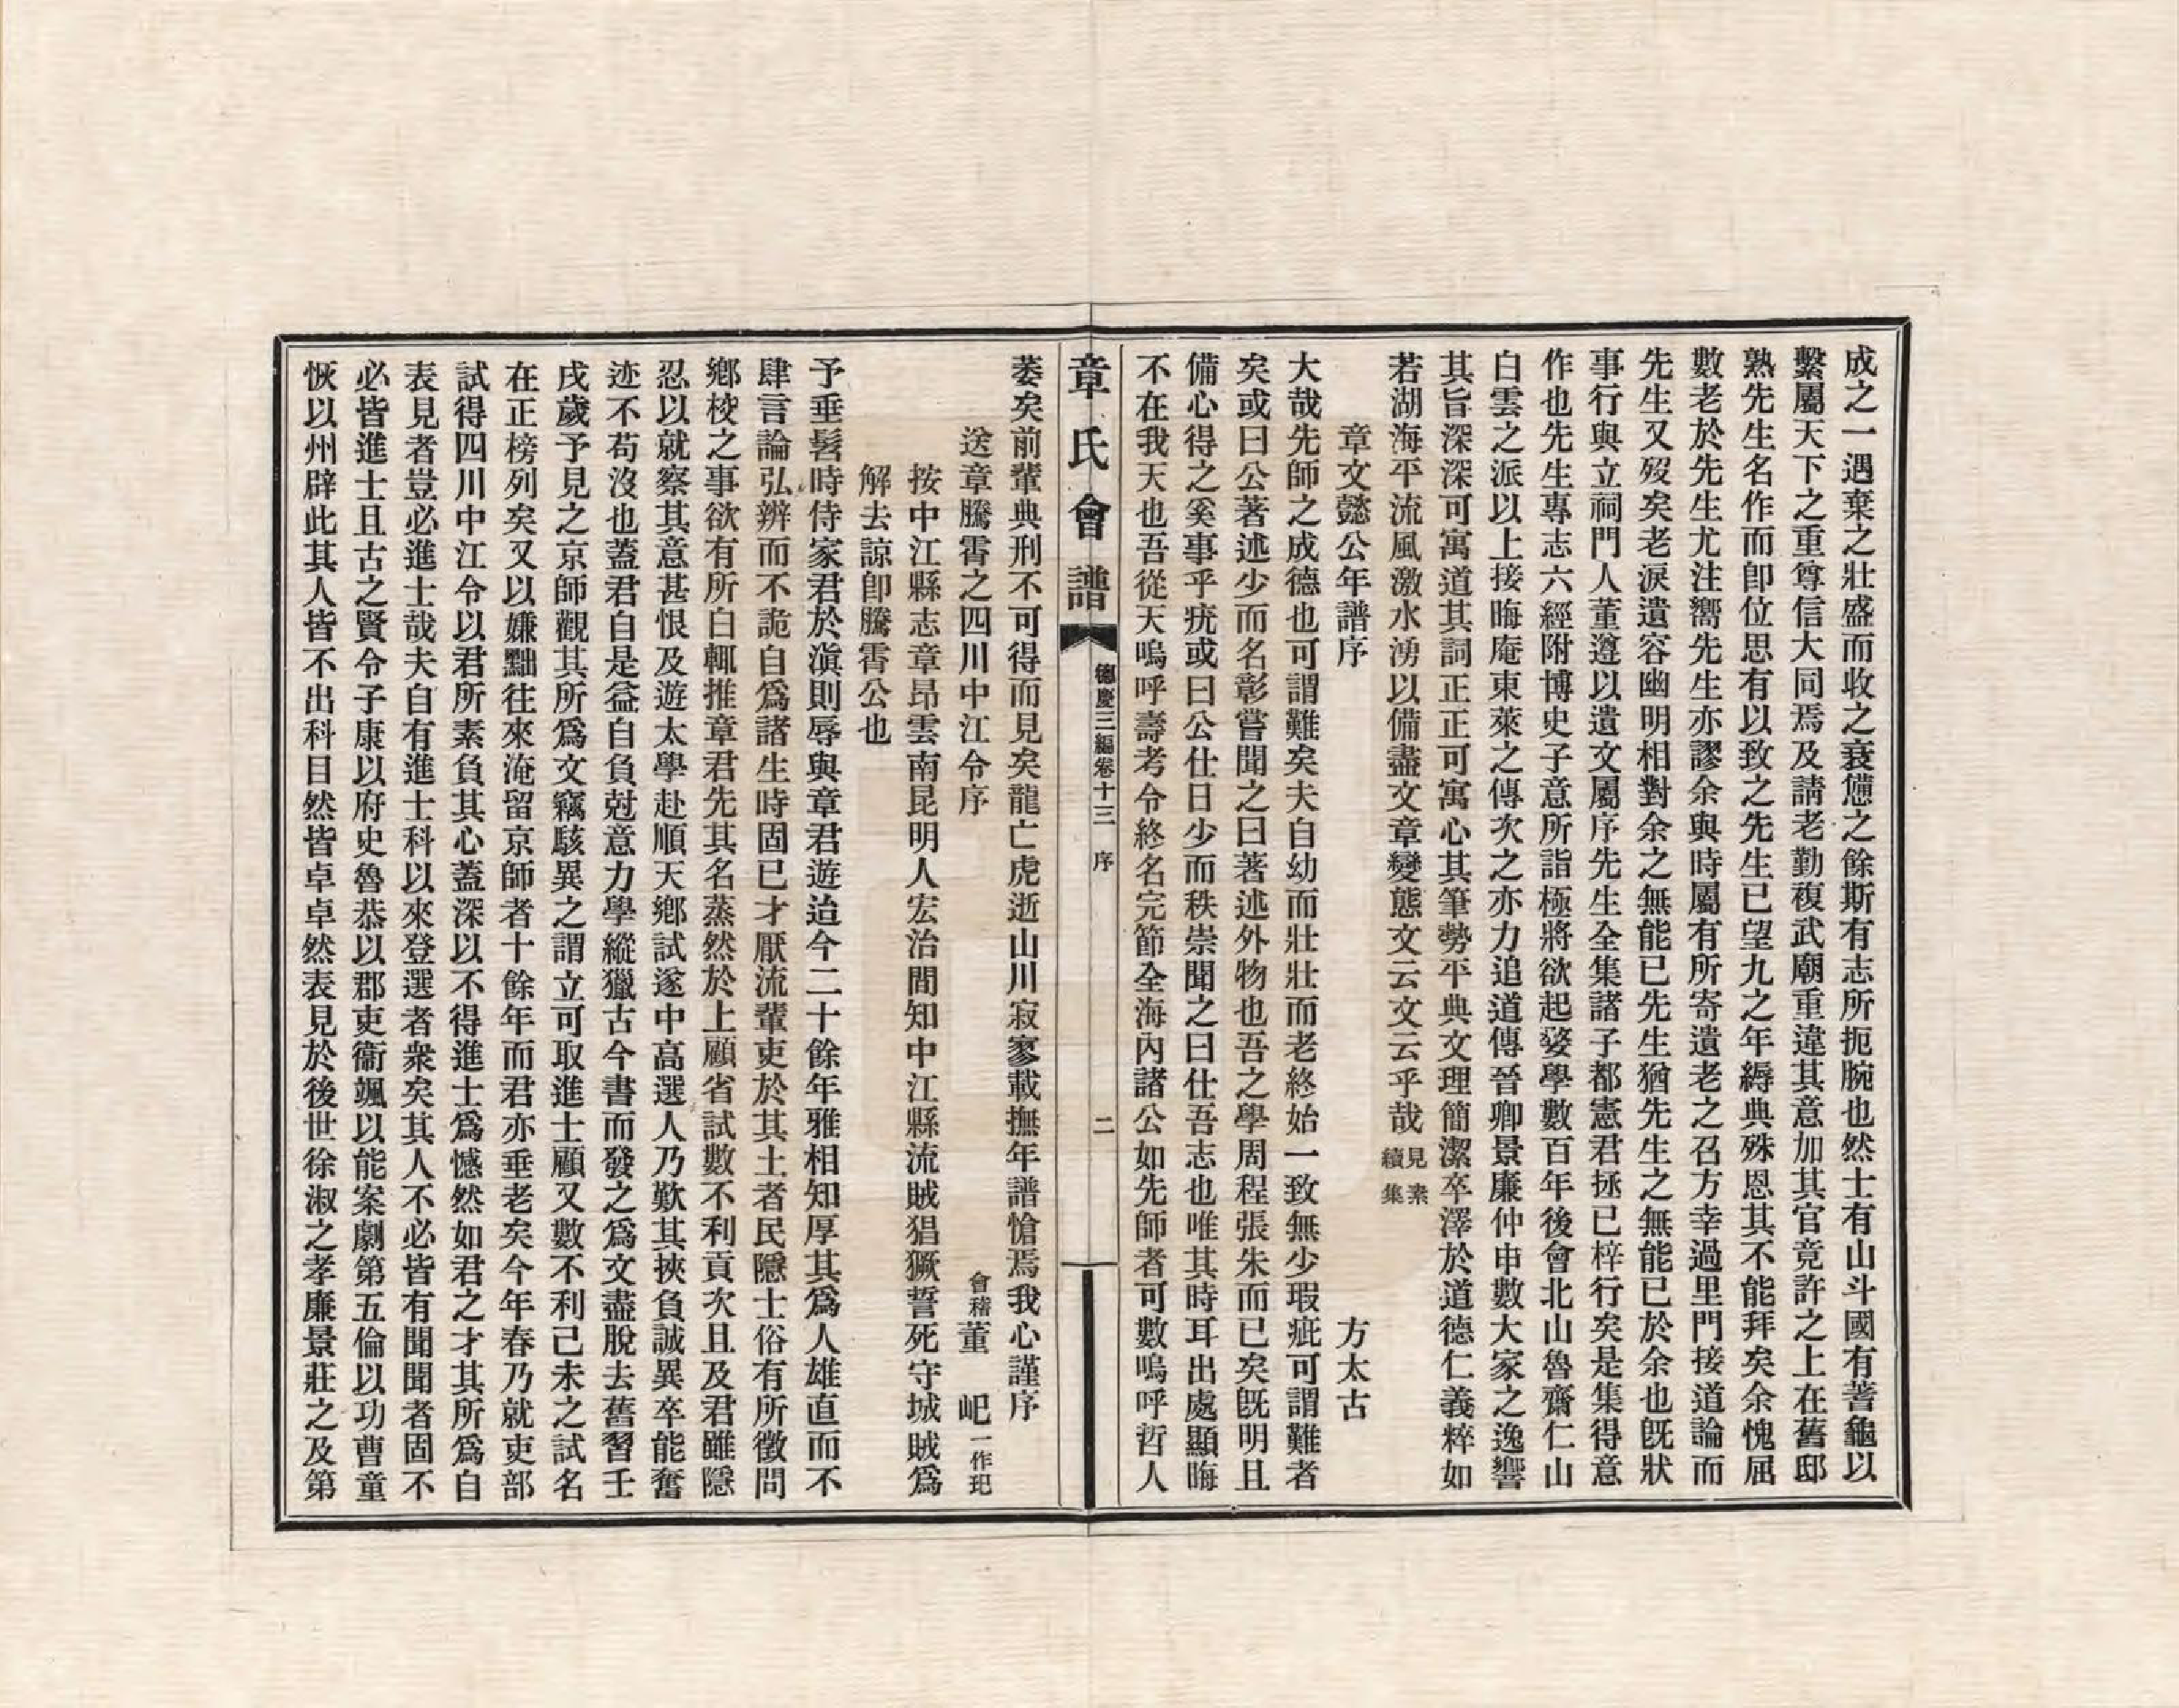 成之一遇棄之壯盛而收之衰憊之餘斯有志所扼腕也然士有山斗國有蓍龜以
繫屬天下之重尊信大同焉及請老勤複武廟重違其意加其官竟許之上在舊邸
熟先生名作而卽位思有以致之先生已望九之年縟典殊恩其不能拜矣余愧屈
數老於先生尤注嚮先生亦謬余與時屬有所寄遺老之召方幸過里門接道論而
先生又歿矣老淚遺容幽明相對余之無能已先生猶先生之無能已於余也旣狀
事行與立祠門人董遵以遺文屬序先生全集諸子都憲君拯已梓行矣是集得意
作也先生專志六經附博史子意所詣極將欲起婺學數百年後會北山魯齋仁山
白雲之派以上接晦庵東萊之傳次之亦力追道傳晉卿景廉仲申數大家之逸響
其旨深深可寓道其詞正正可寓心其筆勢平典文理簡潔卒澤於道德仁義粹如
若湖海平流風激水湧以備盡文章變態文云文云乎哉見素續集
章文懿公年譜序 方太古
大哉先師之成德也可謂難矣夫自幼而壯壯而老終始一致無少瑕疵可謂難者
矣或曰公著述少而名彰嘗聞之曰著述外物也吾之學周程張朱而已矣旣明且
備心得之奚事乎疣或曰公仕日少而秩崇聞之曰仕吾志也唯其時耳出處顯晦
不在我天也吾從天嗚呼壽考令終名完節全海內諸公如先師者可數嗚呼哲人
章氏會譜 德慶三編卷十三 序 二
萎矣前輩典刑不可得而見矣龍亡虎逝山川寂寥載撫年譜愴焉我心謹序
送章騰霄之四川中江令序 會稽董 屺一作玘
按中江縣志章昂雲南昆明人宏治間知中江縣流賊猖獗誓死守城賊爲
解去諒卽騰霄公也
予垂髫時侍家君於滇則辱與章君遊迨今二十餘年雅相知厚其爲人雄直而不
肆言論弘辨而不詭自爲諸生時固已才厭流輩吏於其土者民隱士俗有所徵問
鄉校之事欲有所白輒推章君先其名蒸然於上顧省試數不利貢次且及君雖隱
忍以就察其意甚恨及遊太學赴順天鄉試遂中高選人乃歎其挾負誠異卒能奮
迹不苟沒也蓋君自是益自負尅意力學縱獵古今書而發之爲文盡脫去舊習壬
戌歲予見之京師觀其所爲文竊駭異之謂立可取進士顧又數不利己未之試名
在正榜列矣又以嫌黜往來淹留京師者十餘年而君亦垂老矣今年春乃就吏部
試得四川中江令以君所素負其心蓋深以不得進士爲憾然如君之才其所爲自
表見者豈必進士哉夫自有進士科以來登選者衆矣其人不必皆有聞聞者固不
必皆進士且古之賢令子康以府史魯恭以郡吏衞颯以能案劇第五倫以功曹童
恢以州辟此其人皆不出科目然皆卓卓然表見於後世徐淑之孝廉景莊之及第